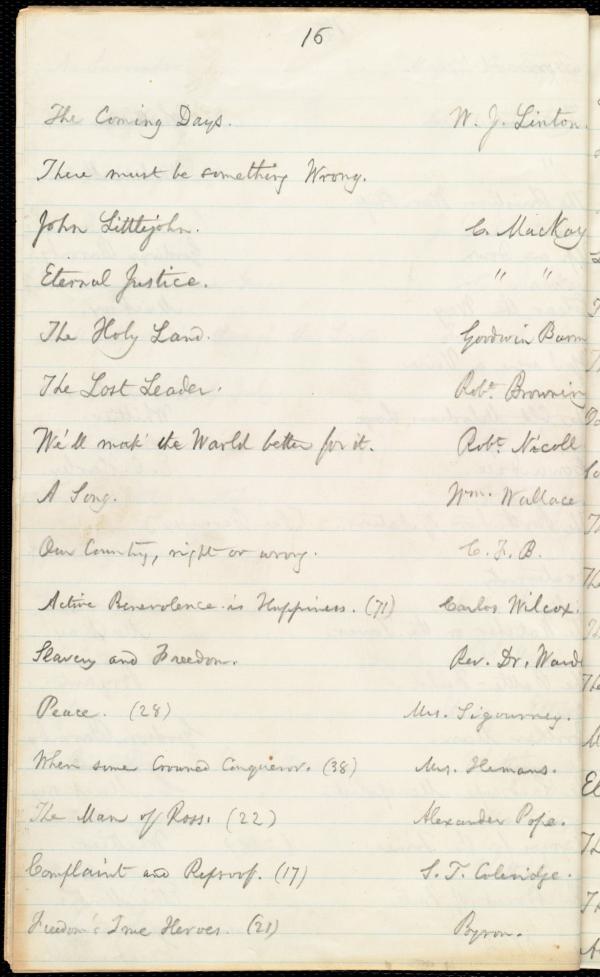 16
The Coming Days. W. J. Linton.
There must be something Wrong.
John Littlejohn. C. MacKay
Eternal Justice. " "
The Holy Land. Goodwin Barm
The Lost Leader. Robt. Browning
We'll make the World better for it. Robt. Nicoll
A Song. Wm. Wallace
Our Country, right or wrong. C. F. B.
Active Benevolence is Happiness. (71) Carlos Wilcox.
Slavery and Freedom. Rev. Dr. Ward
Peace. (28) Mrs. Sigourney.
When some Crowned Conqueror. (38) Mrs. Hemans.
The Man of Ross. (22) Alexander Pope.
Complaint and Reproof. (17) S. T. Coleridge.
Freedom's True Heroes. (21) Byron.